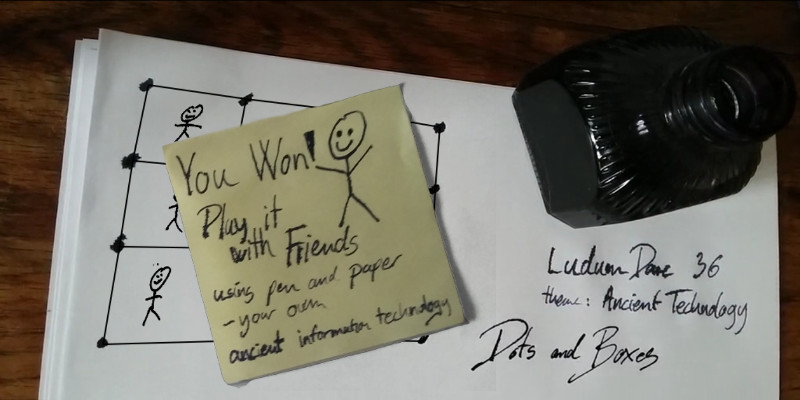 You Won!
Play it
with Friends
using pen and paper
- your own
ancient information technology
Ludum Dare 36
theme: Ancient Technology
Dots and Boxes